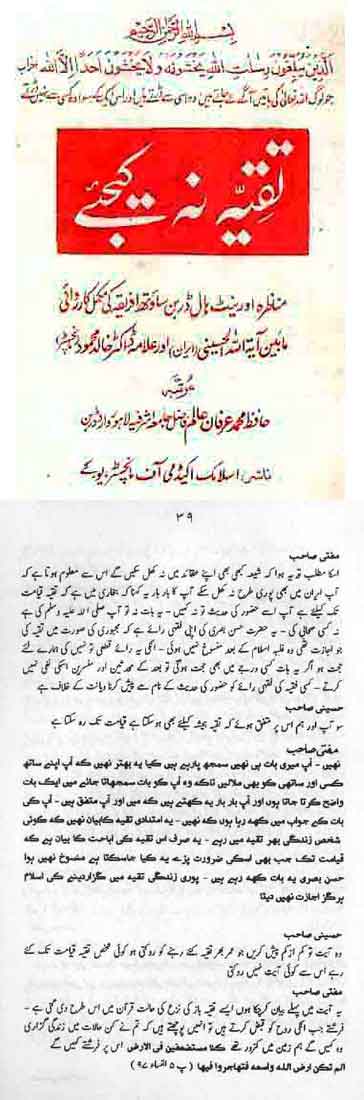 بسم اللہ الرحمن الرحیم
الَّذِينَ يُبَلِّغُونَ رِسَالَاتِ اللَّهِ يَخْشَوْنَهُ وَلَا يَخْشَوْنَ أَحَدًا إِلَّا اللَّهَ
جو لوگ اللہ تعالیٰ کی باتیں آگے لے چلتے ہیں وہ اسی سے ڈرتے ہیں اور اس کے سوا وہ کسی سے نہیں ڈرتے
تقیہ نہ کیجئے
مناظرہ اورینٹ ہال ڈربن ساؤتھ افریقہ کی مکمل کارروائی
مابین آیۃ اللہ الحسینی (ایران) اور علامہ ڈاکٹر خالد محمود (مانچسٹر)
مرتبہ
حافظ محمد عرفان عالم فاضل جامعہ اشرفیہ لاہور وارد ڈربن
ناشر: اسلامک اکیڈمی آف مانچسٹر یو کے
۳۹
مفتی صاحب
اسکا مطلب تو یہ ہوا کہ شیعہ کبھی بھی اپنے عقائد میں نہ کھل سکیں گے اس سے معلوم ہوتا ہے کہ
آپ ایران میں بھی پوری طرح نہ کھل سکے آپ کا بار بار یہ کہنا کہ بخاری میں ہے کہ تقیہ قیامت
تک کیلئے ہے آپ اسے حضور کی حدیث تو نہ کہیں - یہ بات نہ تو آپ صلی اللہ علیہ وسلم کی ہے
نہ کسی صحابی کی - یہ حضرت حسن بصری کی اپنی فقہی رائے ہے کہ مجبوری کی صورت میں تقیہ کی
جو اجازت تھی وہ غلبہ اسلام کے بعد منسوخ نہیں ہوئی - انکی یہ رائے قطعی تو نہیں کی ہمارے لئے
حجت ہو اگر یہ بات کسی درجے میں بھی حجت ہوگی تو بعد کے محدثین اور مفسرین اسکی نفی نہیں
کرتے - کسی فقیہ کی فقہی رائے کو حضور کی حدیث کے نام سے پیش کرنا دیانت کے خلاف ہے
حسینی صاحب
سو آپ اور ہم اس پر متفق ہوئے کہ تقیہ ہمیشہ کیلئے بھی ہو سکتا ہے قیامت تک رہ سکتا ہے
مفتی صاحب
نہیں - آپ میری بات ہی نہیں سمجھ پارہے ہیں کیا یہ بہتر نہیں کہ آپ اپنے ساتھ
کسی اور ساتھی کو بھی ملالیں تاکہ وہ آپ کو بات سمجھاتا جائے میں ایک بات
واضح کرتا جاتا ہوں اور آپ بار بار یہ کہتے ہیں کہ میں اور آپ متفق ہیں - آپ کی
بات کے جواب میں کہہ رہا ہوں کہ نہیں - یہ امتدادی تقیہ کا بیان نہیں کہ کوئی
شخص زندگی بھر تقیہ میں رہے - یہ صرف اس تقیہ کی اباحت کا بیان ہے کہ
قیامت تک جب بھی اسکی ضرورت پڑے یہ کیا جاسکتا ہے منسوخ نہیں ہوا
حسن بصری یہ بات کہہ رہے ہیں - پوری زندگی تقیہ میں گزار دینے کی اسلام
ہرگز اجازت نہیں دیتا
حسینی صاحب
وہ آیت تو کم از کم پیش کریں جو عمر بھر تقیہ کئے رہنے کو روکتی ہو کوئی شخص تقیہ قیامت تک کئے
رہے اس سے کوئی آیت نہیں روکتی
مفتی صاحب
یہ آیت میں پہلے بیان کرچکا ہوں ایسے تقیہ باز کی نزع کی حالت قرآن میں اس طرح دی گئی ہے -
فرشتے جب انکی روح کو قبض کرتے ہیں تو انہیں پوچھتے ہیں کہ تم نے کن حالات میں زندگی گزاری
وہ کہیں گے ہم زمین میں کمزور تھے کنا مستضعفین فی الارض اس پر فرشتے کہیں گے
الم تکن ارض اللہ واسعہ فتھاجروا فیھا ( پ ۵ النساء ۹۷ )